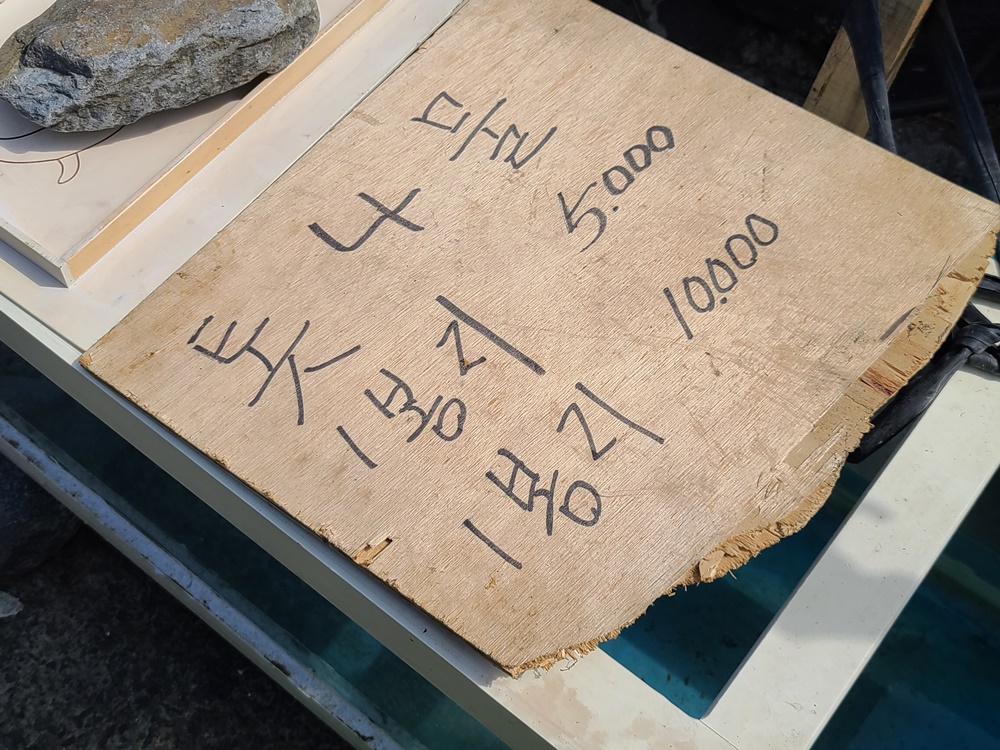 톳 나물
1봉지 5.000
1봉지 10.000